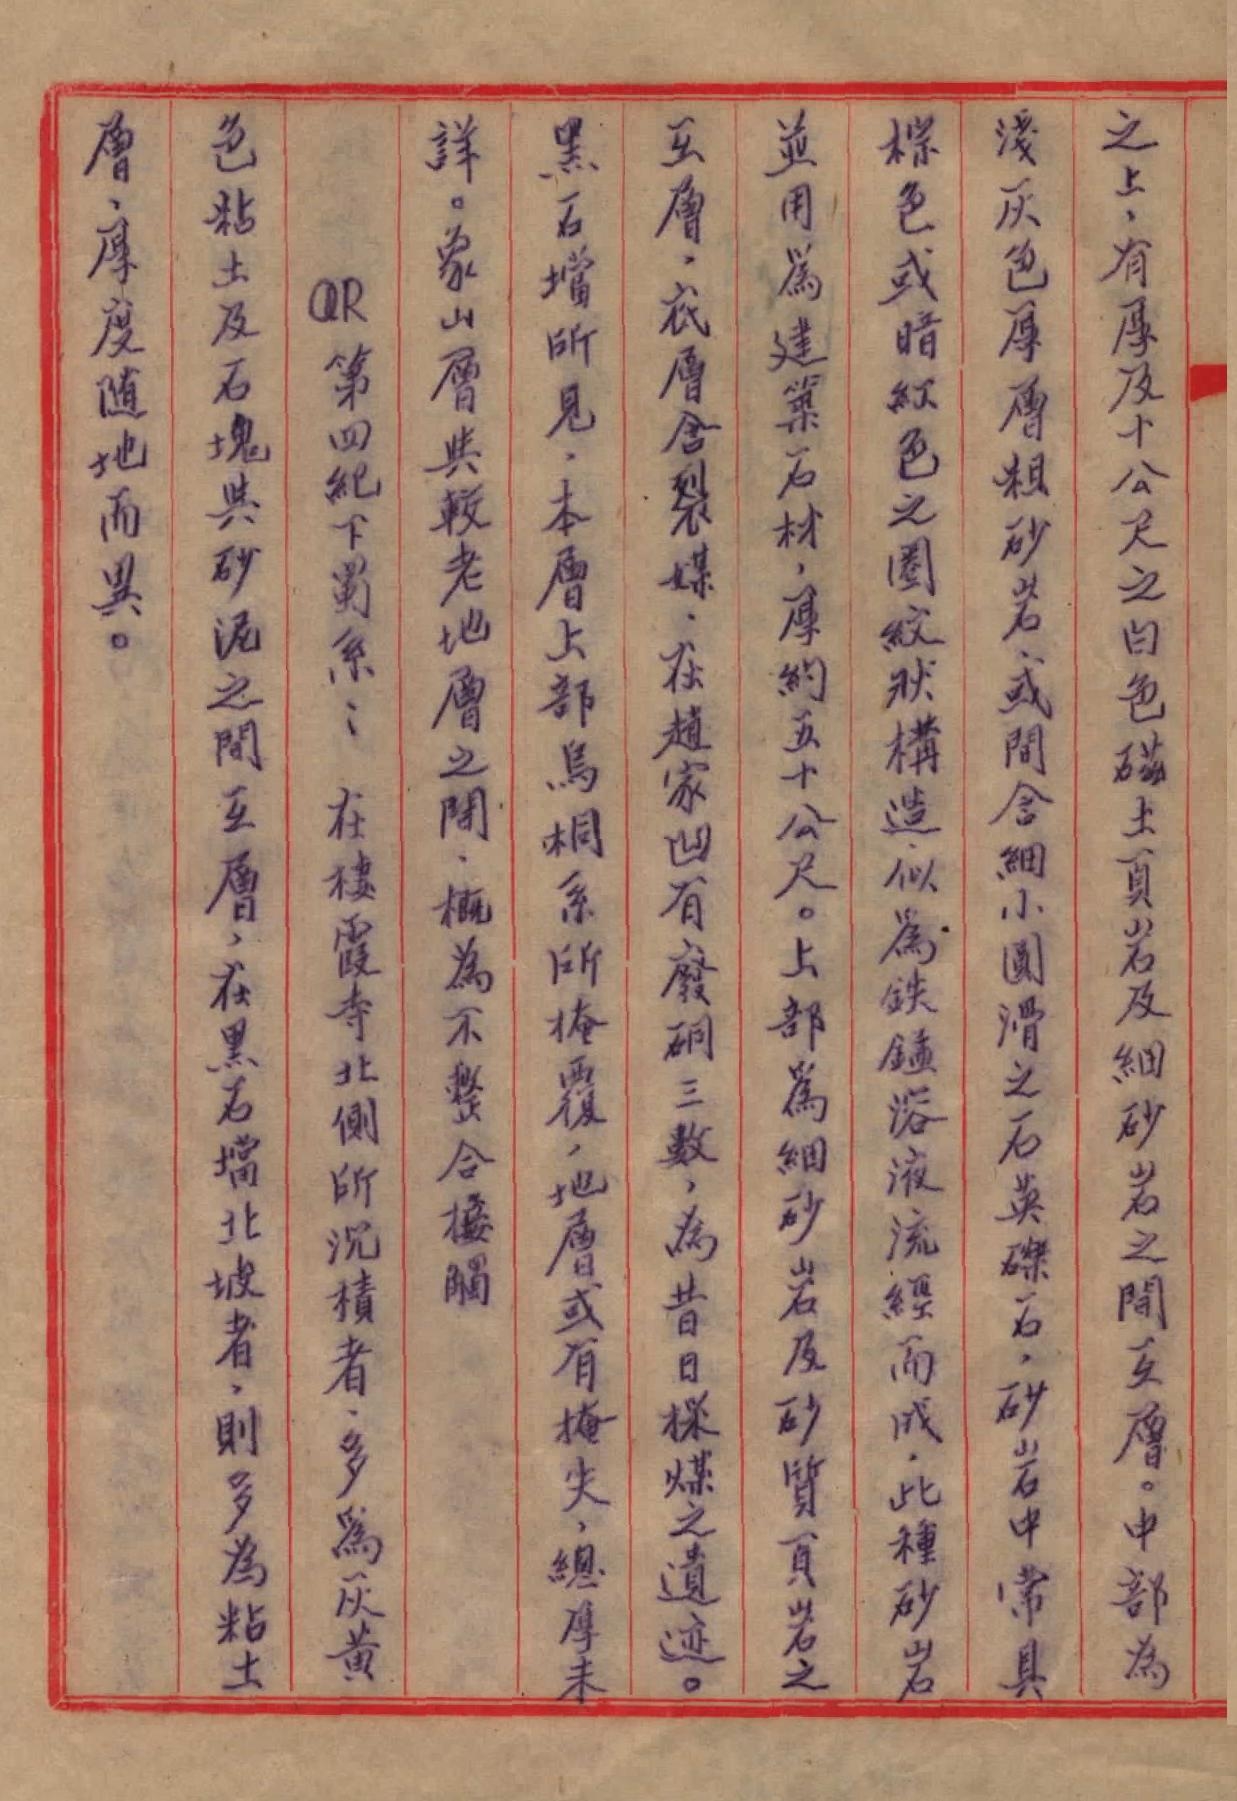 之上，有厚及十公尺之白色磁土頁岩及細砂岩之間互層。中部為
淺灰色厚層粗砂岩，或間含細小圓滑之石英礫石，砂岩中常具
棕色或暗紅色之圈紋狀構造，似為鉄鑪溶液流經而成，此種砂岩
並用為建築石材，厚約五十公尺。上部為細砂岩及砂質頁岩之
互層，底層含裂煤，在趙家凹有廢硐三數，為昔日採煤之遺迹。
黑石壋所見，本層上部烏桐系所掩覆，地層或有掩失，總厚未
詳。象山層與較老地層之間，概為不整合接觸
QR第四紀下蜀系： 在棲霞寺北側所沉積者，多為灰黃
色粘土及石塊與砂泥之間互層，在黑石壋北坡者，則多為粘土
層，厚度随地而異。